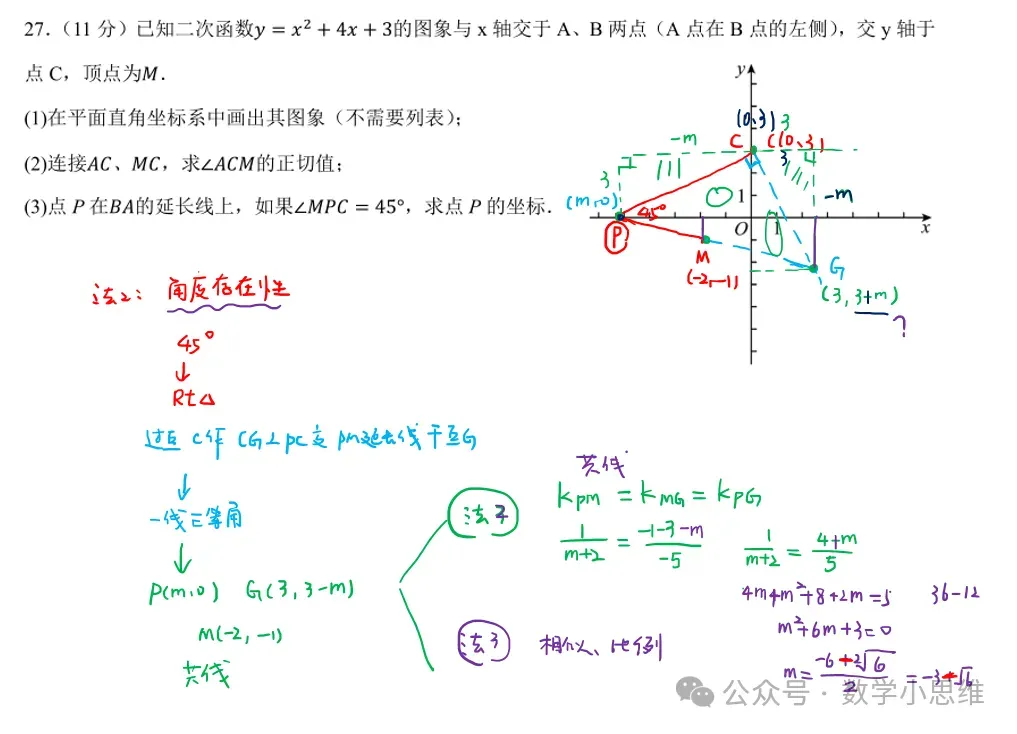 27.（11 分）已知二次函数y = x² + 4x + 3的图象与 x 轴交于 A、B 两点（A 点在 B 点的左侧），交 y 轴于
点 C，顶点为M．
(1)在平面直角坐标系中画出其图象（不需要列表）；
(2)连接AC、MC，求∠ACM的正切值；
(3)点 P 在BA的延长线上，如果∠MPC = 45°，求点 P 的坐标．
y
(0,3) 3
-m
C
C(0,3)
3
4
3
(m,0)
1
-m
45°
P
O
1
x
M
(-2,-1)
G
(3, 3+m)
?
法2： 角度存在性
45°
↓
Rt△
过点 C作 CG⊥PC交 PM延长线于点G
↓
一线三等角
↓
P(m,0) G(3, 3-m)
M(-2, -1)
共线
法2
共线
kPM = kMG = kPG
1/(m+2) = (-1-3-m)/(-5)
1/(m+2) = (4+m)/5
4m+m²+8+2m=5
36-12
m²+6m+3=0
m= (-6+2√6)/2 = -3+√6
法3 相似、比例
公众号 · 数学小思维